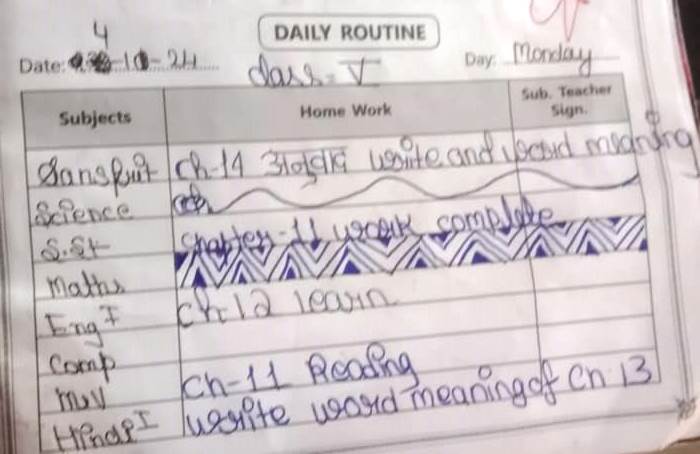 DAILY ROUTINE
4
Date: -10-24
Class-V
Day: Monday
Subjects Home Work Sub. Teacher Sign.
Sanskrit Ch-14 write and word meaning
Science
S.St Chapter-11 work complete
Maths
Eng I Ch 12 learn
Comp
M.V Ch-11 Reading
Hindi I write word meaning of Ch 13